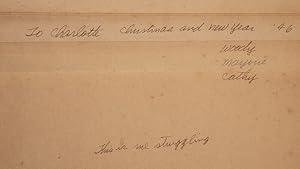 To Charlotte Christmas and New Year '46
Woody
Marjorie
Cathy
This is me struggling